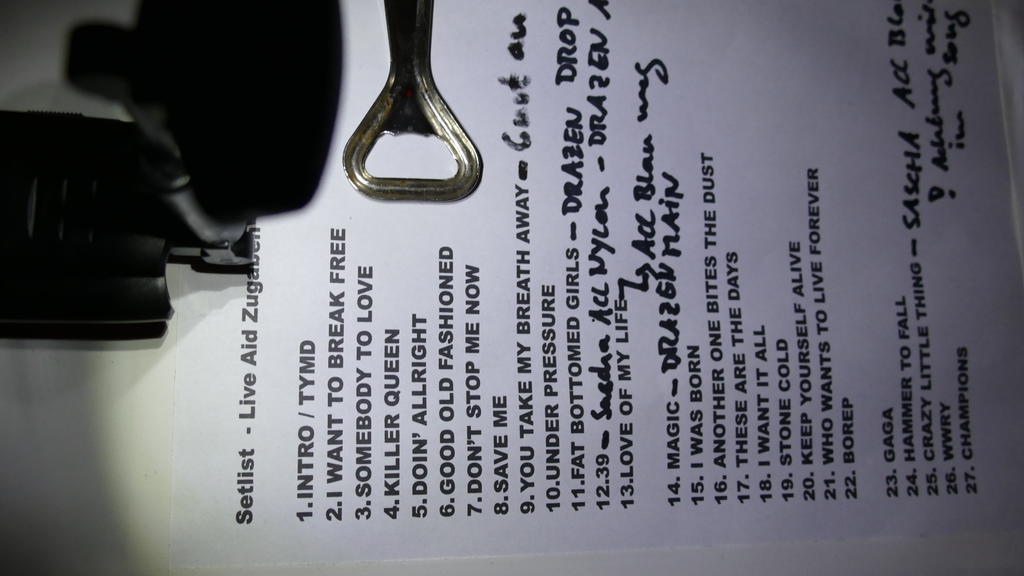 Setlist - Live Aid Zugaben
1.INTRO / TYMD
2.I WANT TO BREAK FREE
3.SOMEBODY TO LOVE
4.KILLER QUEEN
5.DOIN' ALLRIGHT
6.GOOD OLD FASHIONED
7.DON'T STOP ME NOW
8.SAVE ME
9.YOU TAKE MY BREATH AWAY -
10.UNDER PRESSURE
11.FAT BOTTOMED GIRLS - DRAZEN DROP
12.39 - Sascha Acc Nylon - DRAZEN
13.LOVE OF MY LIFE - Acc Blau weg
14. MAGIC - DRAZEN MAIN
15. I WAS BORN
16. ANOTHER ONE BITES THE DUST
17. THESE ARE THE DAYS
18. I WANT IT ALL
19. STONE COLD
20. KEEP YOURSELF ALIVE
21. WHO WANTS TO LIVE FOREVER
22. BOREP
23. GAGA
24. HAMMER TO FALL
25. CRAZY LITTLE THING - SASCHA Acc Blau
26. WWRY ! Achtung
27. CHAMPIONS im song